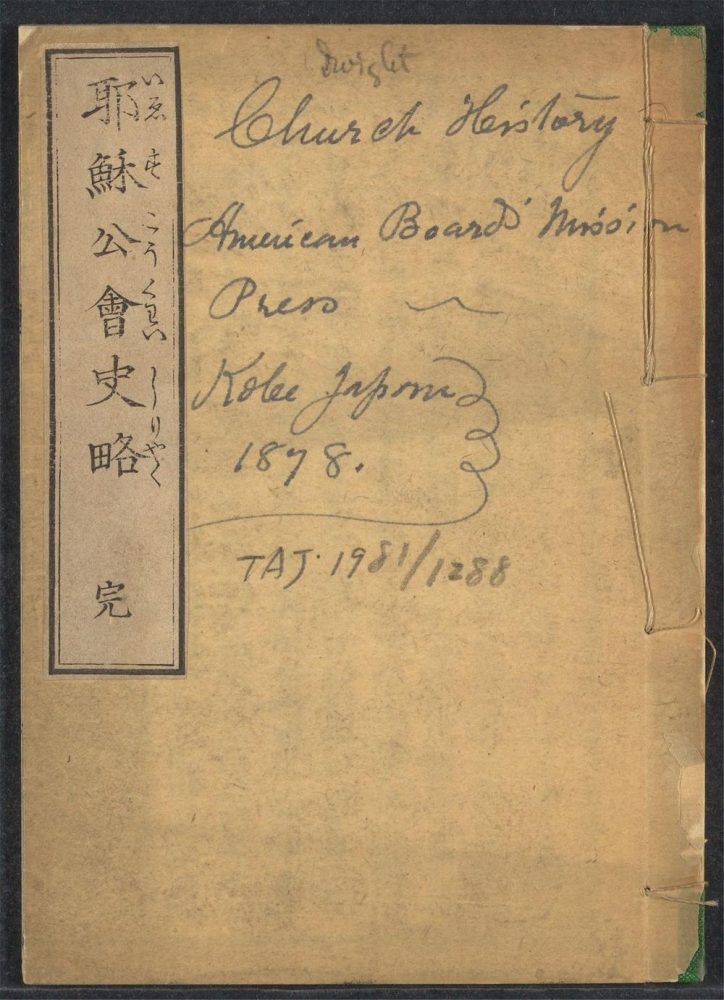 Dwight
Church History
American Board's Mission
Press
Kobe Japan
1878.
TAJ. 1981/1288
耶穌公會史略 完
いゑす こうくわい しりやく